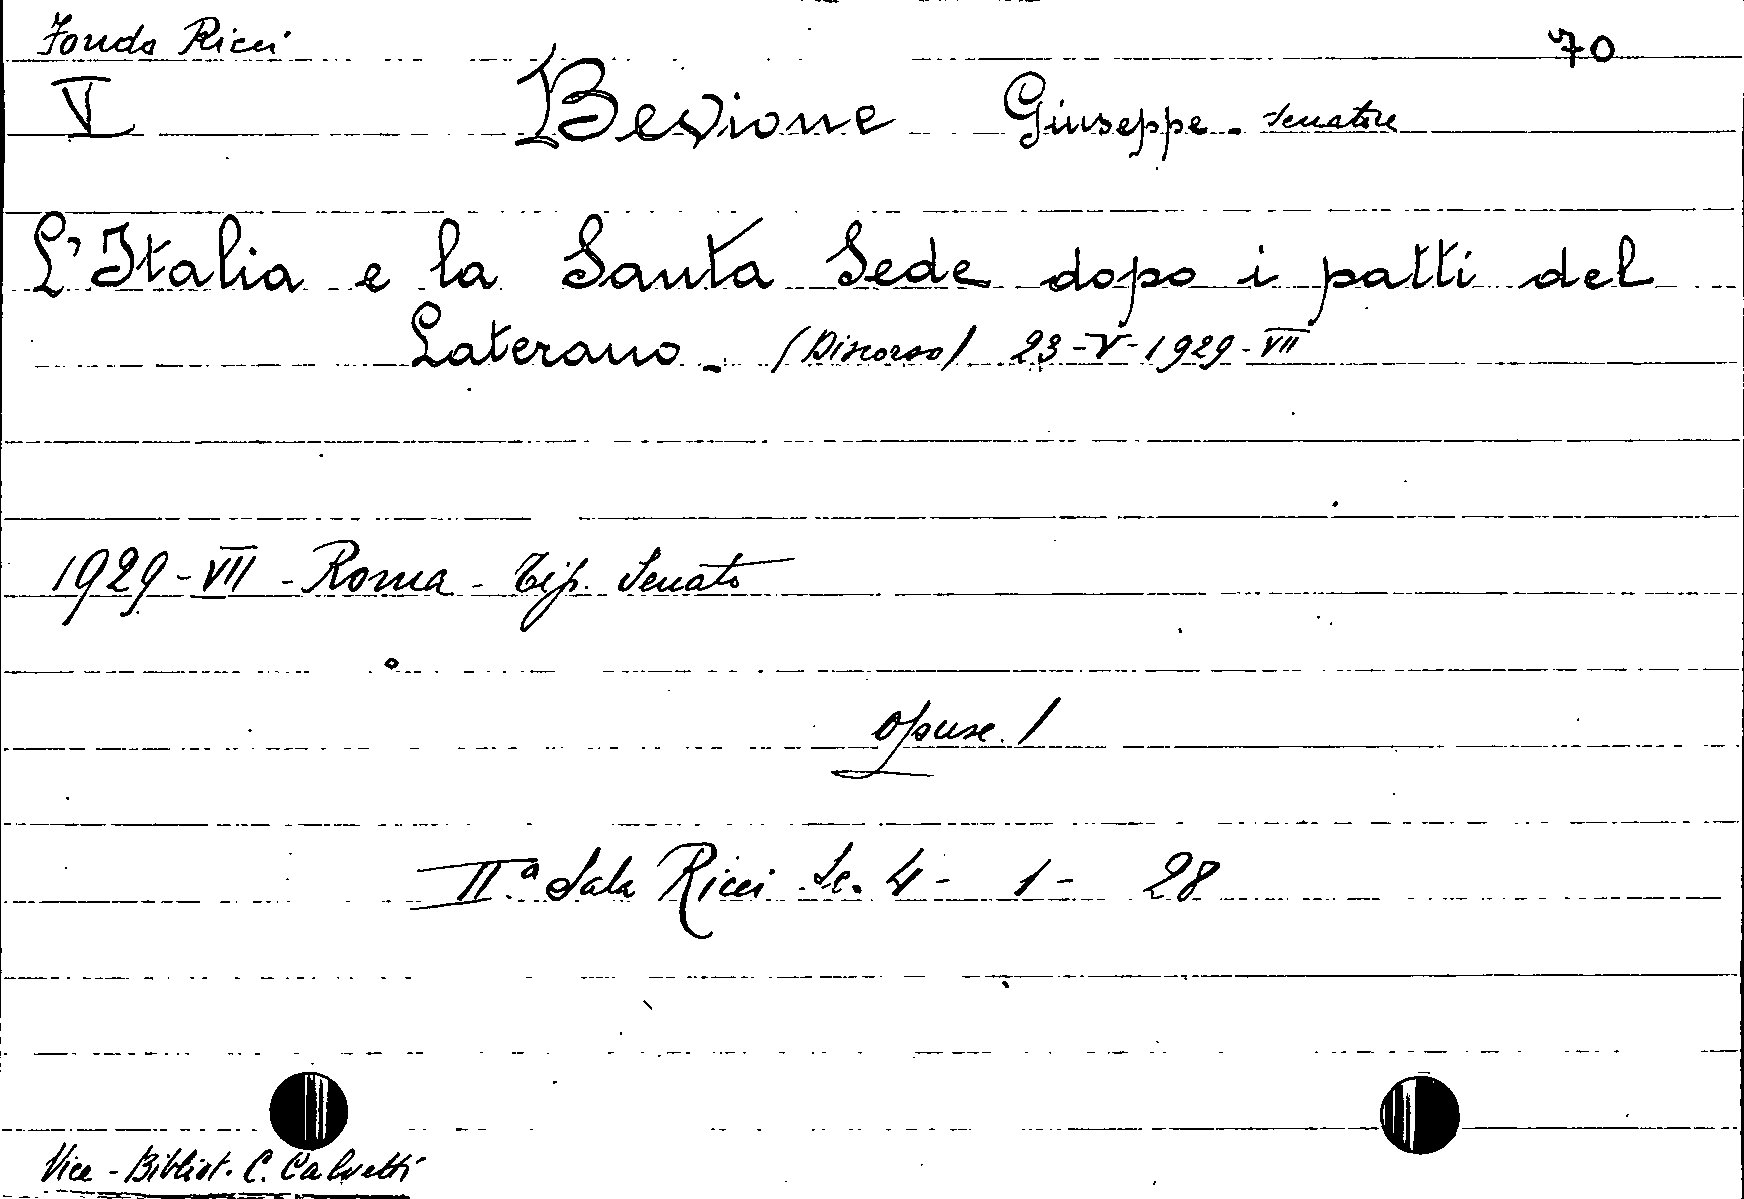 Fondo Ricci 70
V Bevione Giuseppe - senatore
L'Italia e la Santa Sede dopo i patti del
Laterano - (Discorso) 23-V-1929-VII
1929-VII - Roma - Tip. Senato
opusc. 1
II.ª Sala Ricci Sc. 4 - 1 - 28
Vice-Bibliot. C. Calvetti